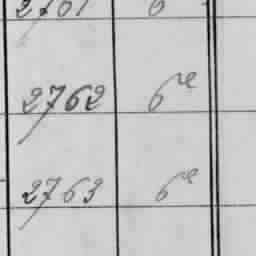 2761 6
2762 6e
2763 6e